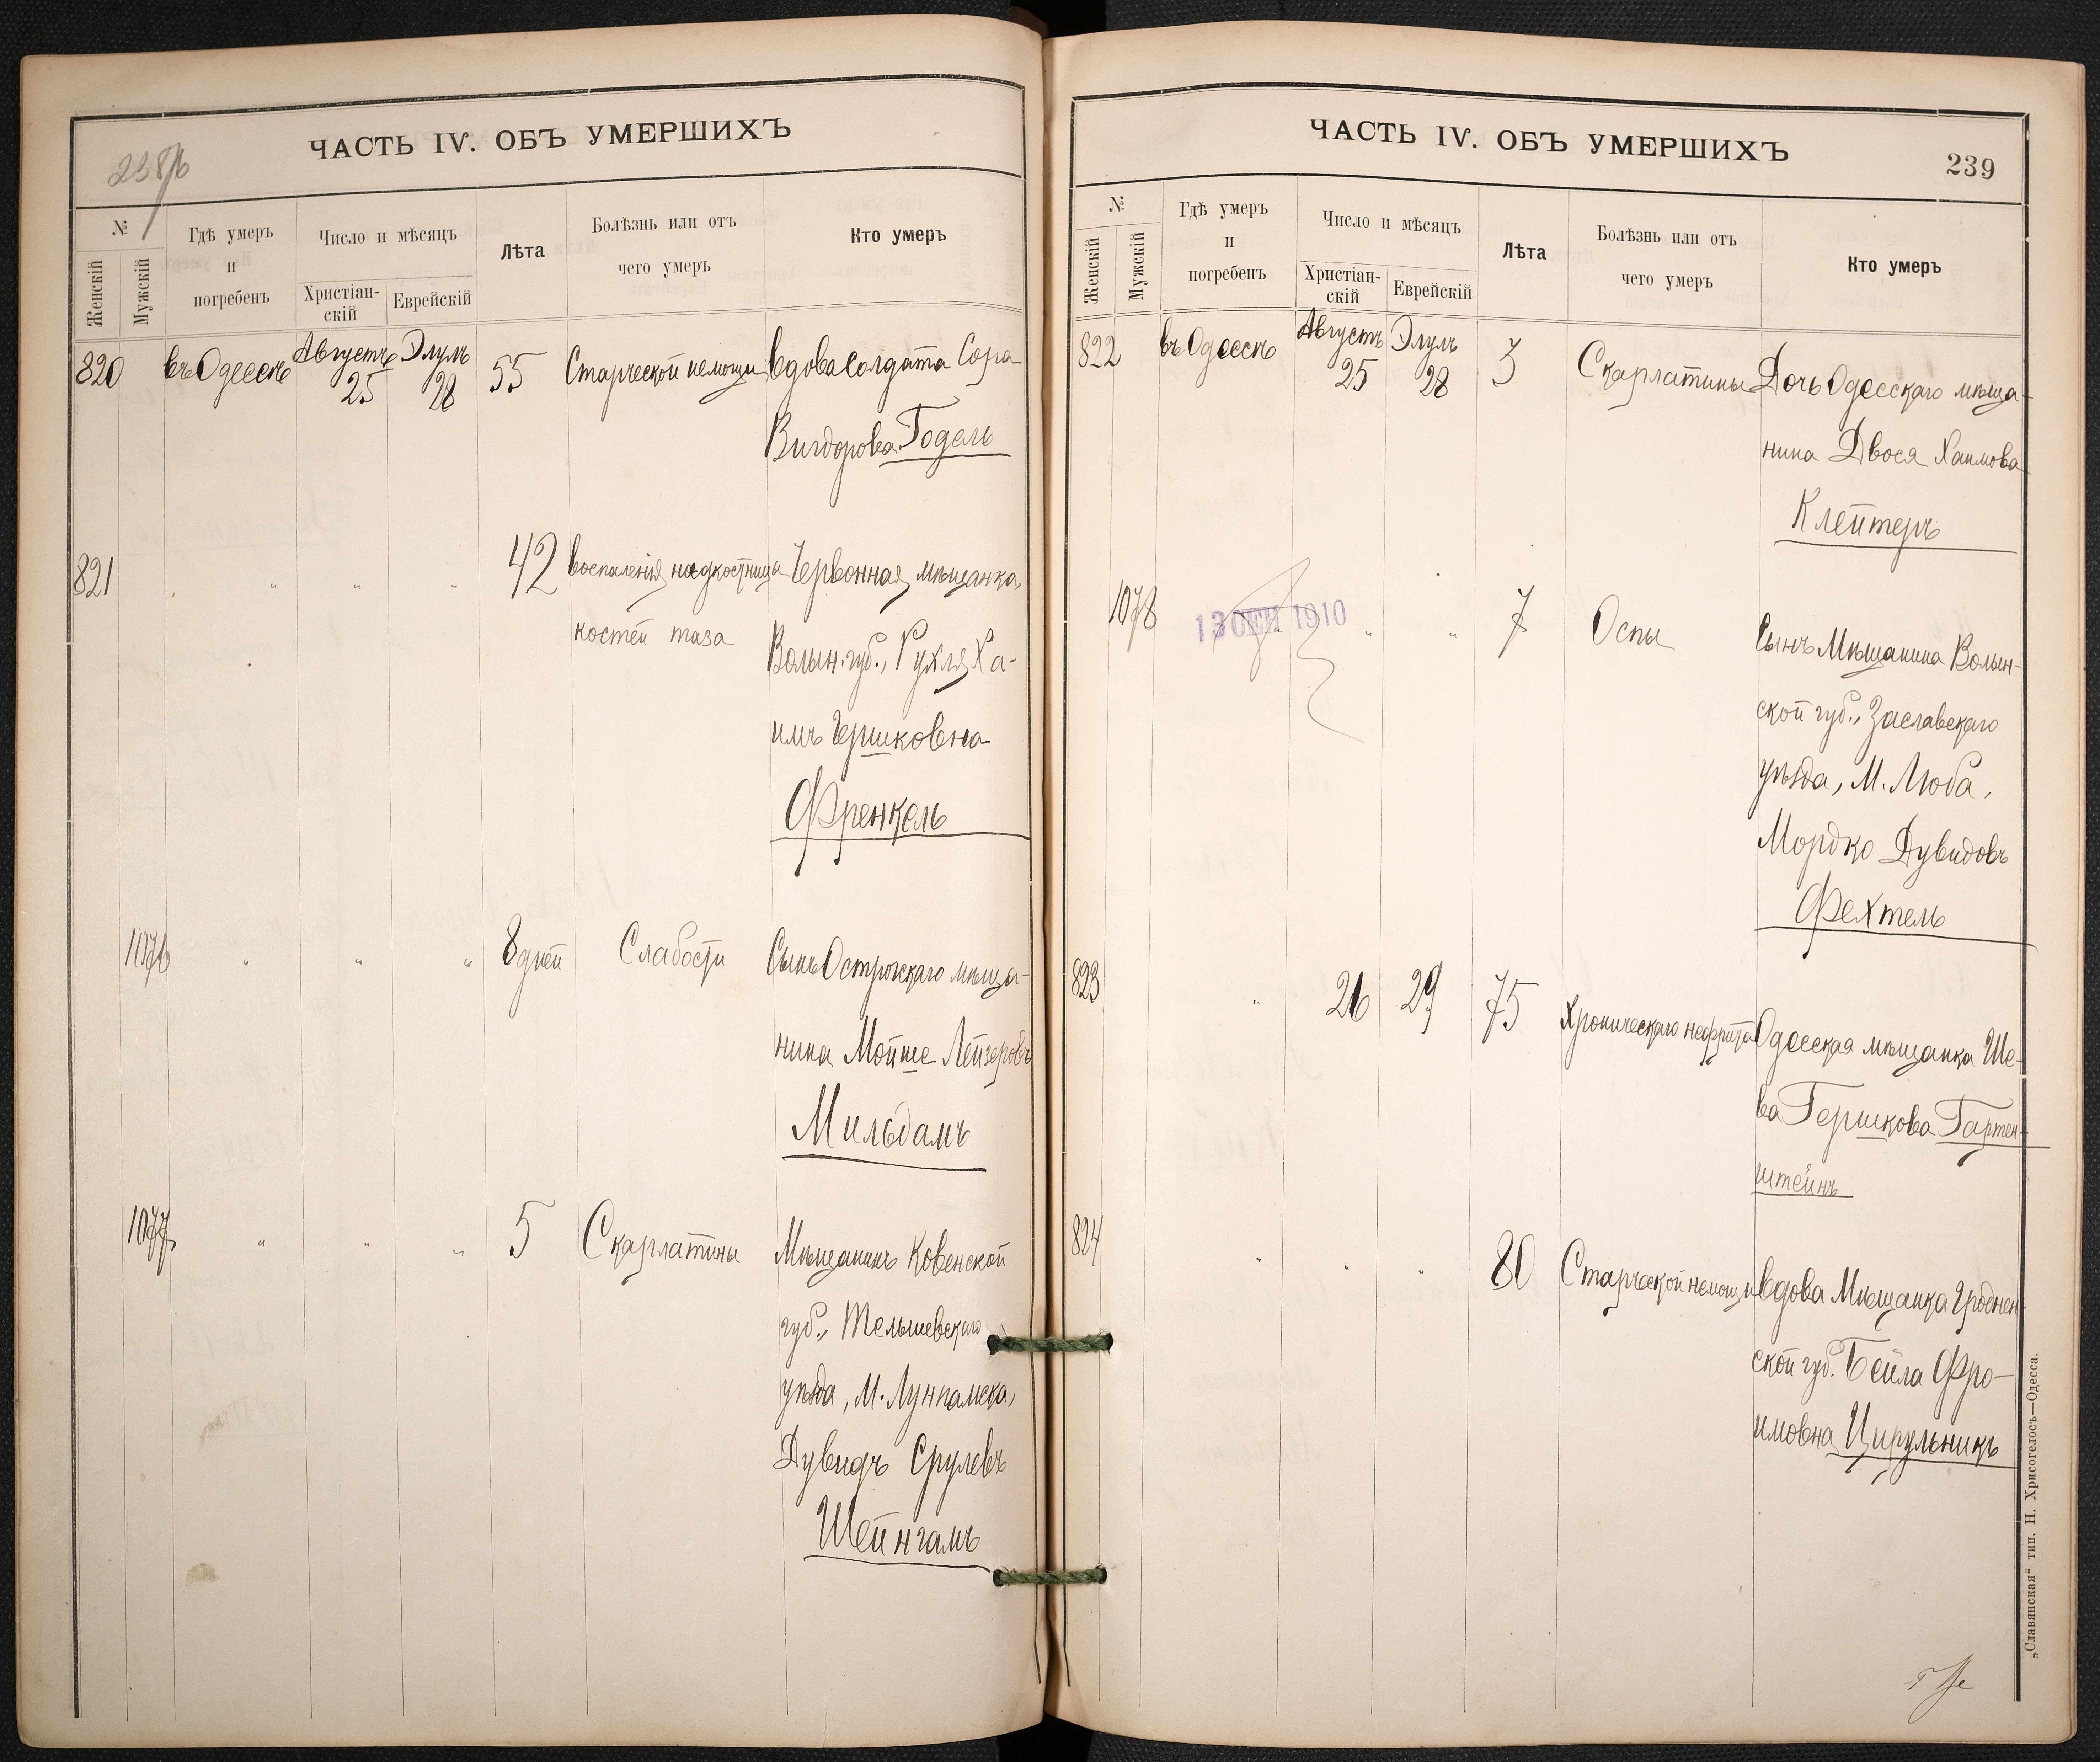 ЧАСТЬ IV. ОБЪ УМЕРШИХЪ
№
Женскій
Мужскій
Гдѣ умеръ
и
погребенъ
Число и мѣсяцъ
Христіан-
скій
Еврейскій
Лѣта
Болѣзнь или отъ
чего умеръ
Кто умеръ
820 въ Одессѣ Августъ 25 Элулъ 28 55 Старческой немощи Вдова солдата Сора
Вигдорова Годель
821 " " " 42 воспаленія надкостницы Червонная мѣщанка,
костей таза Волын. губ., Рухля Ха-
имъ Гершковна
Френкель
1076 " " " 8 дней Слабости Сынъ Острожскаго мѣща-
нина Мойше Лейзеровъ
Мильдамъ
1077 " " " 5 Скарлатины Мѣщанинъ Ковенской
губ., Тельшевскаго
уѣзда, М.
Дувидъ Срулевъ
Шейнгамъ
ЧАСТЬ IV. ОБЪ УМЕРШИХЪ
239
№
Женскій
Мужскій
Гдѣ умеръ
и
погребенъ
Число и мѣсяцъ
Христіан-
скій
Еврейскій
Лѣта
Болѣзнь или отъ
чего умеръ
Кто умеръ
822 въ Одессѣ Августъ 25 Элулъ 28 3 Скарлатины Дочь Одесскаго мѣща-
нина Двося Хаимова
Клейтеръ
1078 " " " 7 Оспы Сынъ Мѣщанина Волын-
13 СЕН 1910
ской губ., Заславскаго
уѣзда, М. Люба,
Мордко Дувидовъ
Фехтель
823 " 26 29 75 Хроническаго нефрита Одесская мѣщанка Ше-
ва Гершкова Гартен-
штейнъ
824 " " " 80 Старческой немощи Вдова Мѣщанка Гроднен-
ской губ. Бейла Фро-
имовна Цирульникъ
„Славянская“ тип. Н. Хрисогелосъ—Одесса.